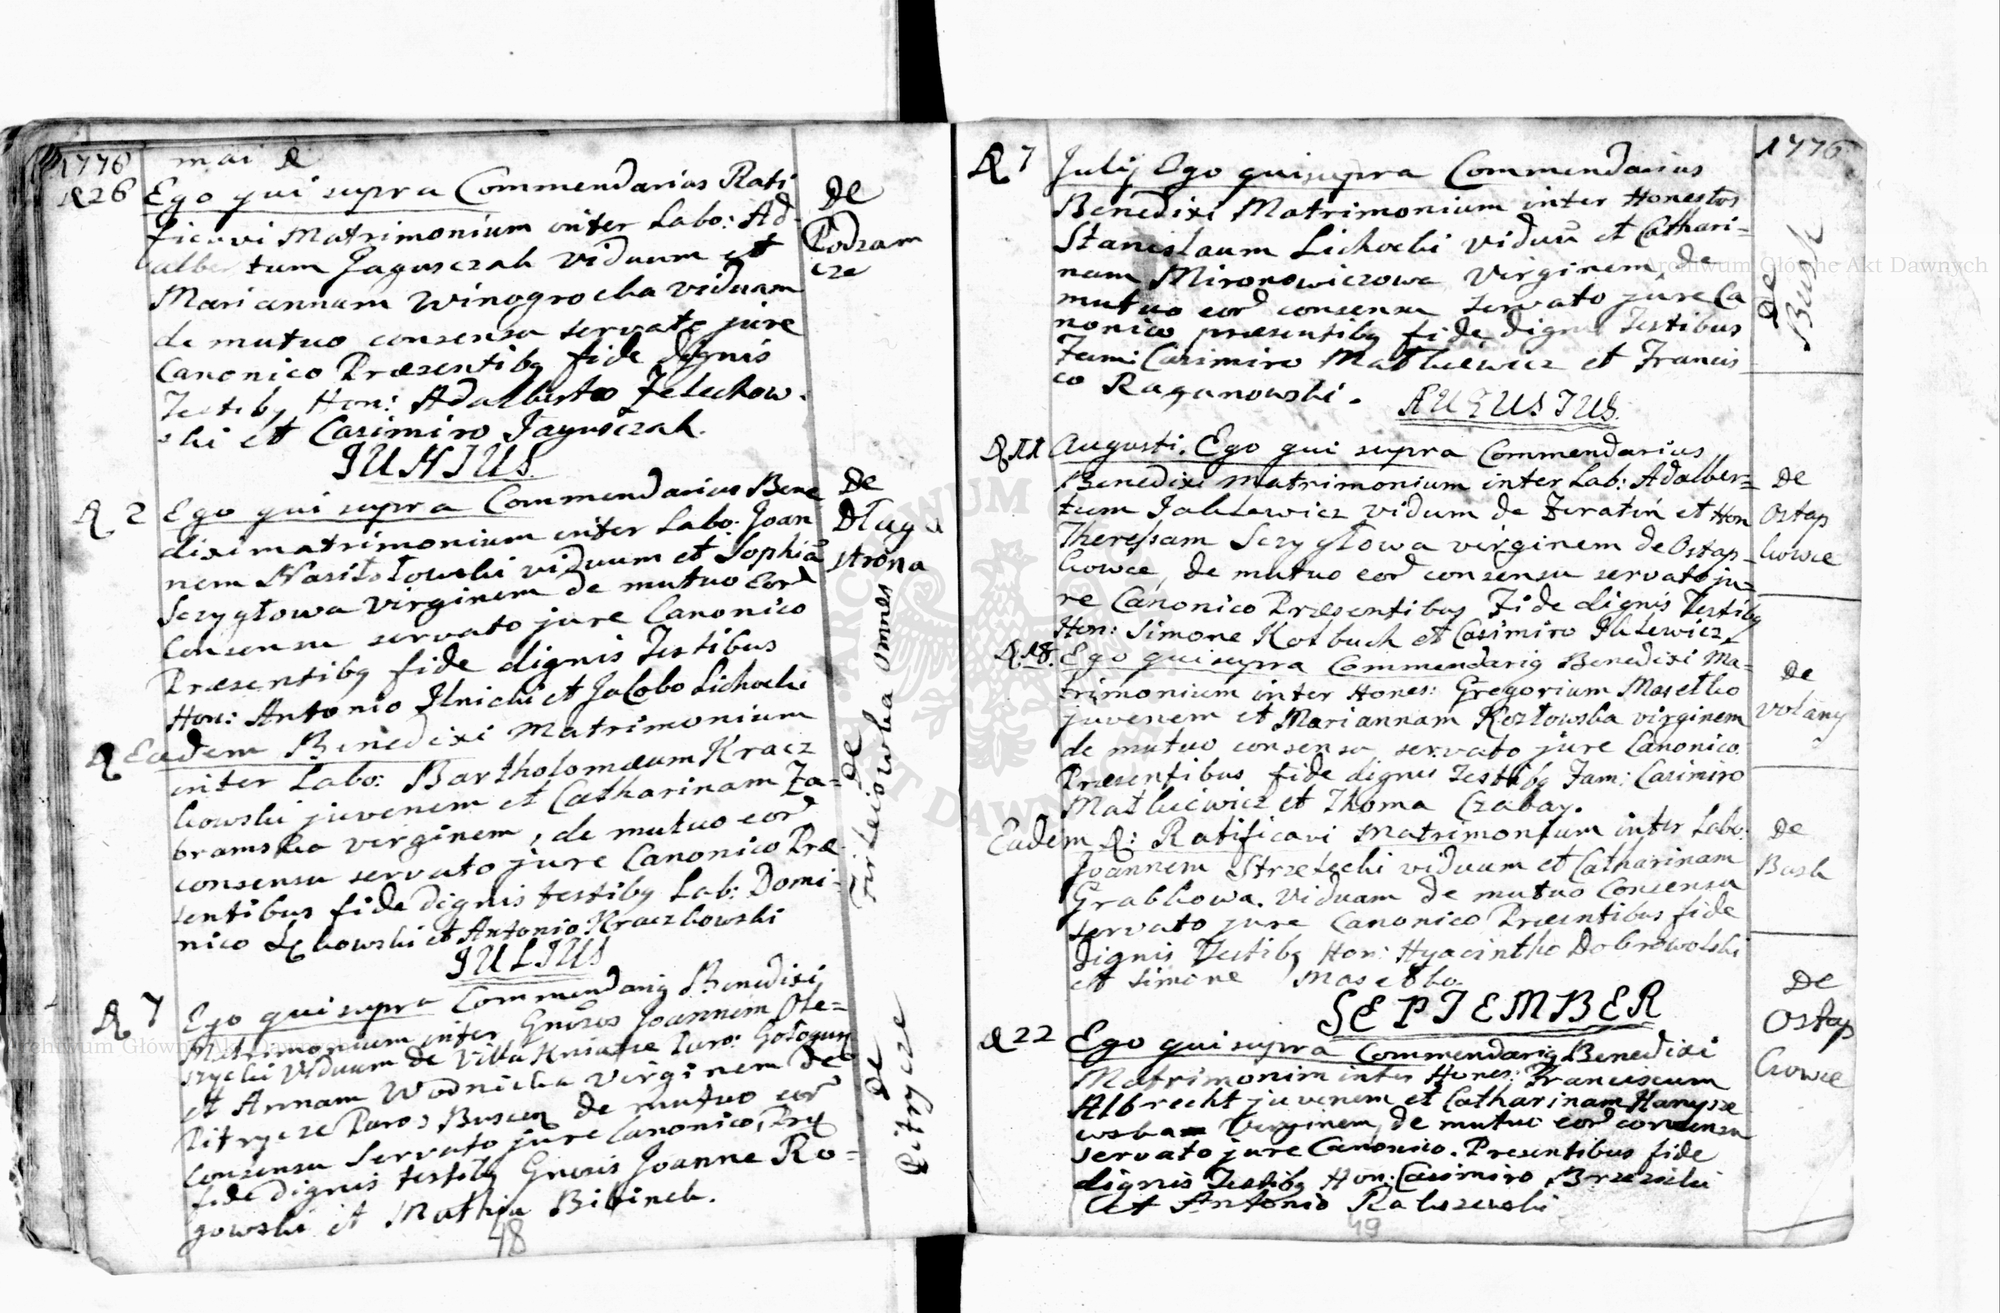 1776 mai D
D 26 Ego qui supra Commendarius Rati
ficavi Matrimonium inter Labo: Ad
albertum Jagusczak viduum et
Mariannam Winogrocka viduam
de mutuo consensu servato jure
Canonico Præsentibq fide dignis
Testibq Hon: Adalberto Zelechow-
ski et Casimiro Jagusczak.
De
Podzam
cze
JUNIUS
D 2 Ego qui supra Commendarius Bene
dixi matrimonium inter Labo: Joan
nem viduum et Sophiã
Sczygłowa virginem de mutuo eor
Consensu servato jure Canonico
Præsentibq fide dignis Testibus
Hon: Antonio Ilnicki et Jacobo Lichocki
De
Dluga
strona
D Eadem Benedixi Matrimonium
inter Labo: Bartholomæum Kracz
kowski juvenem et Catharinam Za=
bramska virginem, de mutuo eor
consensu servato jure Canonico Præ
sentibus fide dignis testibq Lab: Domi-
nico et Antonio Kraczkowski
de
omnes
JULIUS
D 7 Ego qui supra Commendariq Benedixi
Matrimonium inter Gnosos Joannem Ole=
szycki viduum de Villa Kniaze Paro: Gologury
et Annam Wodnicka virginem de
Pitrycze Paro: de mutuo eor
consensu servato jure Canonico, Prq
fide dignis testibq Gnosis Joanne Ro=
gowski et Mathia Bibinek.
de
Pitrycze
48
1776
D 7 July Ego qui supra Commendarius
Benedixi Matrimonium inter Honestos
Stanislaum Lichocki viduũ et Cathari=
nam Mironowiczowa virginem, de
mutuo eor consensu servato jure Ca
nonico præsentibq fide dignis Testibus
Fam: Casimiro Matkiewicz et Francis
co Raganowski.
de
Busk
AUGUSTUS
D 11 Augusti. Ego qui supra Commendarius
Benedixi Matrimonium inter Lab: Adalber=
tum viduum de et Hon
Theressam Sczygłowa virginem de Ostap-
kowce, de mutuo eor consensu servato ju=
re Canonico Præsentibus Fide dignis Testibq
Hon: Simone Kotbuch et Casimiro
De
Ostap
kowce
D. 18. Ego qui supra Commendariq Benedixi Ma=
trimonium inter Hones: Gregorium Masetko
juvenem et Mariannam Kozłowska virginem
de mutuo consensu servato jure Canonico
Præsentibus fide dignis Testibq Fam: Casimiro
Matkiewicz et Thoma Czabay.
de
Volany
Eadem D: Ratificavi Matrimonium inter Labo:
Joannem Strzelecki viduum et Catharinam
Grabkowa. viduam de mutuo Consensu
servato jure Canonico Præsentibus fide
dignis Testibq Hon: Hyacintho Dobrowolski
et Simone Masetko
de
Busk
SEPTEMBER
D 22 Ego qui supra Commendariq Benedixi
Matrimonim inter Hones: Franciscum
Albrecht juvenem et Catharinam Hanysze
wska Virginem, de mutuo eor consensu
servato jure Canonico. Præsentibus fide
dignis Testibq Hon: Casimiro Brzezicki
et Antonio Rakszewski
De
Ostap
kowce
49
Archiwum Główne Akt Dawnych
Archiwum Główne Akt Dawnych